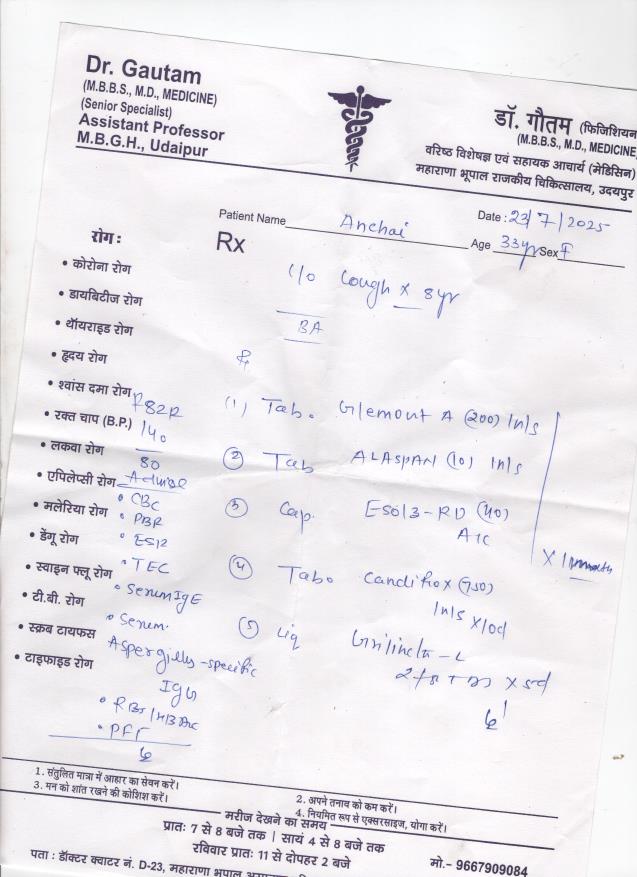 Dr. Gautam
(M.B.B.S., M.D., MEDICINE)
(Senior Specialist)
Assistant Professor
M.B.G.H., Udaipur
डॉ. गौतम (फिजिशियन
(M.B.B.S., M.D., MEDICINE
वरिष्ठ विशेषज्ञ एवं सहायक आचार्य (मेडिसिन)
महाराणा भूपाल राजकीय चिकित्सालय, उदयपुर
Patient Name Anchai Date : 23/7/2025
Rx Age 33yr Sex F
रोग :
• कोरोना रोग
• डायबिटीज रोग
• थॉयराइड रोग
• हृदय रोग
• श्वांस दमा रोग
• रक्त चाप (B.P.)
• लकवा रोग
• एपिलेप्सी रोग
• मलेरिया रोग
• डेंगू रोग
• स्वाइन फ्लू रोग
• टी.बी. रोग
• स्क्रब टायफस
• टाइफाइड रोग
P82R
140
80
Advise
• CBC
• PBF
• ESR
• TEC
• Serum IgE
• Serum
Aspergillus-specific
IgG
• RBS/HBA1c
• PFT
C/O Cough x 8yr
BA
(1) Tab. Glemont A (200) 1n/s
(2) Tab ALASPAN (10) 1n/s
(3) Cap. ESO13-RD (40)
A1C
x 1 month
(4) Tab. Candiflox (750)
1n/s x 10d
(5) Liq
x 5d
1. संतुलित मात्रा में आहार का सेवन करें।
2. अपने तनाव को कम करें।
3. मन को शांत रखने की कोशिश करें।
4. नियमित रूप से एक्सरसाइज, योगा करें।
मरीज देखने का समय
प्रातः 7 से 8 बजे तक | सायं 4 से 8 बजे तक
रविवार प्रातः 11 से दोपहर 2 बजे
मो.- 9667909084
पता : डॉक्टर क्वाटर नं. D-23, महाराणा भूपाल